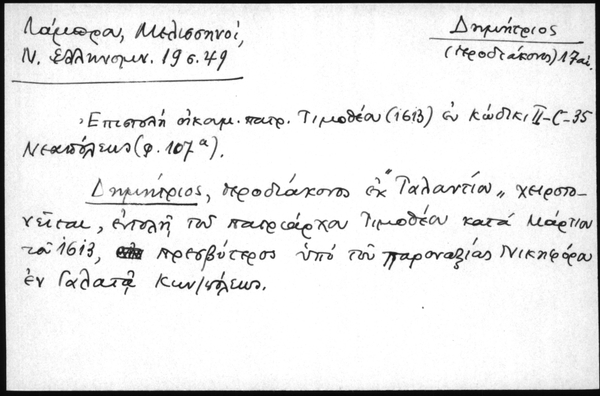 Λάμπρα, Μελισσηνοί,
Ν. Ελληνομν. 19 σ. 49
Δημήτριος
(ἱεροδιάκονος) 17 αἰ.
Ἐπιστολή οἰκουμ. πατρ. Τιμοθέου (1613) ἐν κώδικι II-C-35
Νεαπόλεως (φ. 107α).
Δημήτριος, ἱεροδιάκονος ἐκ "Ταλαντίου" χειροτο-
νεῖται, ἐντολῇ τοῦ πατριάρχου Τιμοθέου κατά Μάρτιο
τοῦ 1613, πρεσβύτερος ὑπό τοῦ Παροναξίας Νικηφόρου
ἐν Γαλατᾷ Κων/πόλεως.